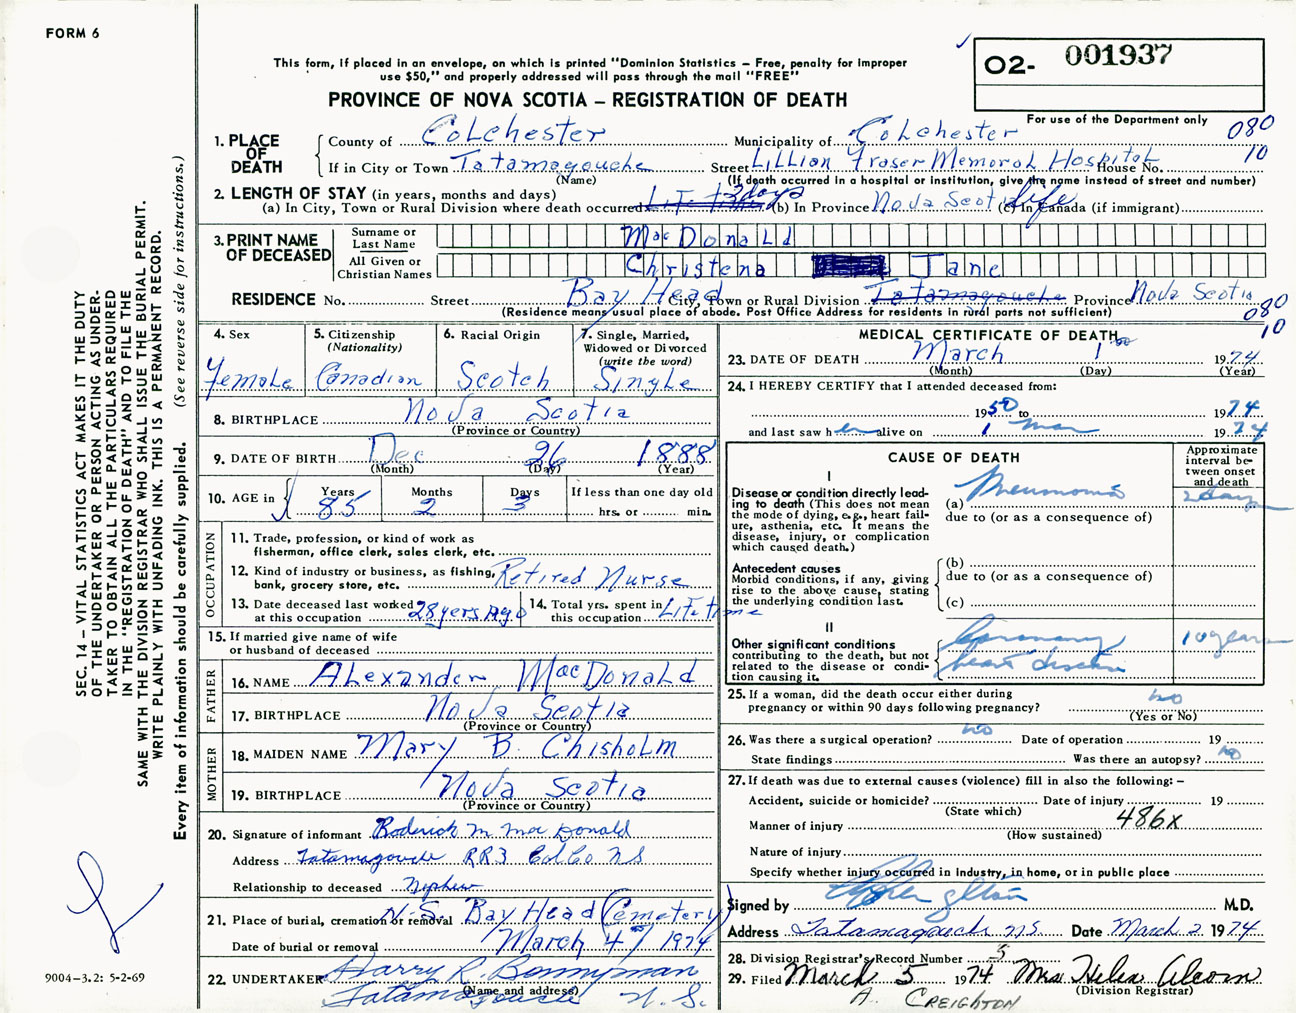 FORM 6
This form, if placed in an envelope, on which is printed "Dominion Statistics – Free, penalty for improper
use $50," and properly addressed will pass through the mail "FREE"
PROVINCE OF NOVA SCOTIA – REGISTRATION OF DEATH
O2- 001937
For use of the Department only
080
10
1. PLACE OF DEATH
County of Colchester Municipality of Colchester
If in City or Town Tatamagouche Street Lillian Fraser Memoral Hospital House No.
(Name) (If death occurred in a hospital or institution, give the name instead of street and number)
2. LENGTH OF STAY (in years, months and days)
(a) In City, Town or Rural Division where death occurred Life time 3 days (b) In Province Nova Scotia life (c) In Canada (if immigrant)
3. PRINT NAME OF DECEASED
Surname or Last Name MacDonald
All Given or Christian Names Christena Jane
RESIDENCE No. Street Bay Head City, Town or Rural Division Tatamagouche Province Nova Scotia
(Residence means usual place of abode. Post Office Address for residents in rural parts not sufficient)
080
10
4. Sex
Female
5. Citizenship
(Nationality)
Canadian
6. Racial Origin
Scotch
7. Single, Married,
Widowed or Divorced
(write the word)
Single
8. BIRTHPLACE Nova Scotia
(Province or Country)
9. DATE OF BIRTH Dec 26 1888
(Month) (Day) (Year)
10. AGE in Years 85 Months 2 Days 3 If less than one day old
hrs. or min.
OCCUPATION
11. Trade, profession, or kind of work as
fisherman, office clerk, sales clerk, etc.
12. Kind of industry or business, as fishing,
bank, grocery store, etc. Retired Nurse
13. Date deceased last worked
at this occupation 28 yers Ago
14. Total yrs. spent in
this occupation Life time
15. If married give name of wife
or husband of deceased
FATHER
16. NAME Alexander MacDonald
17. BIRTHPLACE Nova Scotia
(Province or Country)
MOTHER
18. MAIDEN NAME Mary B Chisholm
19. BIRTHPLACE Nova Scotia
(Province or Country)
20. Signature of informant Roderick M MacDonald
Address Tatamagouche RR3 Col Co NS
Relationship to deceased Nephew
21. Place of burial, cremation or removal N.S. Bay Head (Cemetery)
Date of burial or removal March 4 1974
22. UNDERTAKER Harry R. Bonnyman
(Name and address)
Tatamagouche N.S.
MEDICAL CERTIFICATE OF DEATH
23. DATE OF DEATH March 1 1974
(Month) (Day) (Year)
24. I HEREBY CERTIFY that I attended deceased from:
1950 to 1974
and last saw her alive on 1 mar 1974
CAUSE OF DEATH
Approximate
interval be-
tween onset
and death
I
Disease or condition directly lead-
ing to death (This does not
mean the mode of dying, e.g., heart fail-
ure, asthenia, etc. It means the
disease, injury, or complication
which caused death.)
(a) Pneumonia 2 days
due to (or as a consequence of)
Antecedent causes
Morbid conditions, if any, giving
rise to the above cause, stating
the underlying condition last.
(b)
due to (or as a consequence of)
(c)
II
Other significant conditions
contributing to the death, but not
related to the disease or condi-
tion causing it.
Coronary
heart disease
10 years
25. If a woman, did the death occur either during
pregnancy or within 90 days following pregnancy? no
(Yes or No)
26. Was there a surgical operation? no Date of operation 19
State findings Was there an autopsy? no
27. If death was due to external causes (violence) fill in also the following: –
Accident, suicide or homicide? Date of injury 19
(State which)
Manner of injury 486x
(How sustained)
Nature of injury
Specify whether injury occurred in Industry, in home, or in public place
Signed by M.D.
Address Tatamagouche N.S. Date March 2 1974
28. Division Registrar's Record Number 5
29. Filed March 5 1974 Mrs Helen
(Division Registrar)
A. CREIGHTON
SEC. 14 – VITAL STATISTICS ACT MAKES IT THE DUTY
OF THE UNDERTAKER OR PERSON ACTING AS UNDER-
TAKER TO OBTAIN ALL THE PARTICULARS REQUIRED
IN THE "REGISTRATION OF DEATH" AND TO FILE THE
SAME WITH THE DIVISION REGISTRAR WHO SHALL ISSUE THE BURIAL PERMIT.
WRITE PLAINLY WITH UNFADING INK. THIS IS A PERMANENT RECORD.
Every item of information should be carefully supplied. (See reverse side for instructions.)
9004-3.2: 5-2-69